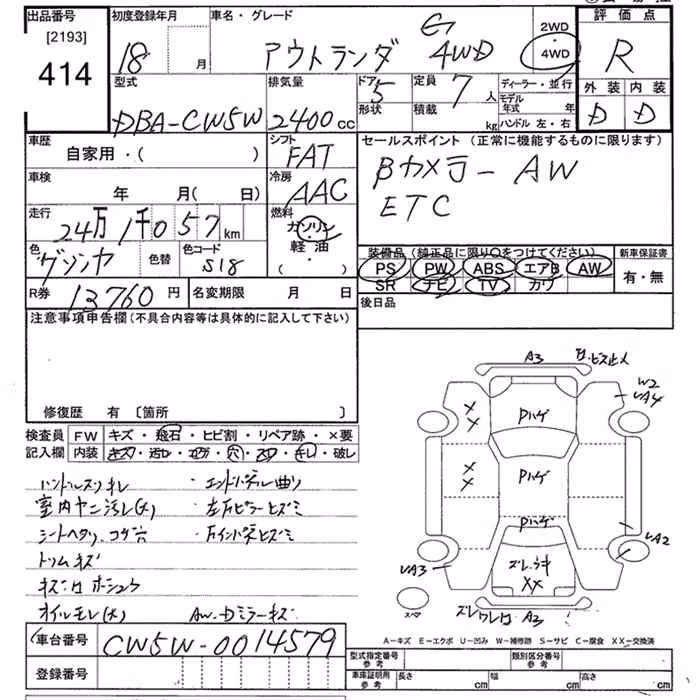 出品番号
[2193]
414
初度登録年月
18 月
車名・グレード
アウトランダ G 4WD
2WD
・
4WD
評価点
R
外装 内装
D D
型式
DBA-CW5W
排気量
2400cc
ドア 5
形状
定員 7人
積載 kg
ディーラー・並行
モデル年式 年
ハンドル 左・右
車歴
自家用・( )
シフト
FAT
セールスポイント (正常に機能するものに限ります)
Bカメラー AW
ETC
車検
年 月( 日)
冷房
AAC
走行
24万1千057km
燃料
ガソリン
・
軽油
( ・ )
色
グンジヤ
色替
色コード
S18
装備品 (純正品に限り○をつけてください)
PS PW ABS エアB AW
SR ナビ TV カワ
新車保証書
有・無
R券 13760円
名変期限 月 日
後日品
注意事項申告欄(不具合内容等は具体的に記入して下さい)
修復歴 有 〔箇所 〕
検査員記入欄
FW キズ・飛石・ヒビ割・リペア跡・×要
内装 キズ・汚レ・コゲ・穴・ヌワ・キレ・破レ
ハンドルスリキレ ・エンドパネル曲り
室内ヤニ汚レ(大) ・左Fピラーヒズミ
シートヘタリ、コゲ穴
トリムキズ
オイルモレ(大) AW・Dミラーキズ
A3
W2
UA4
Pハゲ
Pハゲ
Pハゲ
XX
UA3
UA2
スペア
A3
A−キズ E−エクボ U−凹み W−補修跡 S−サビ C−腐食 XX−交換済
車台番号 CW5W-0014579
登録番号
型式指定番号
参考
類別区分番号
参考
車庫証明用
参考
長さ cm 幅 cm 高さ cm